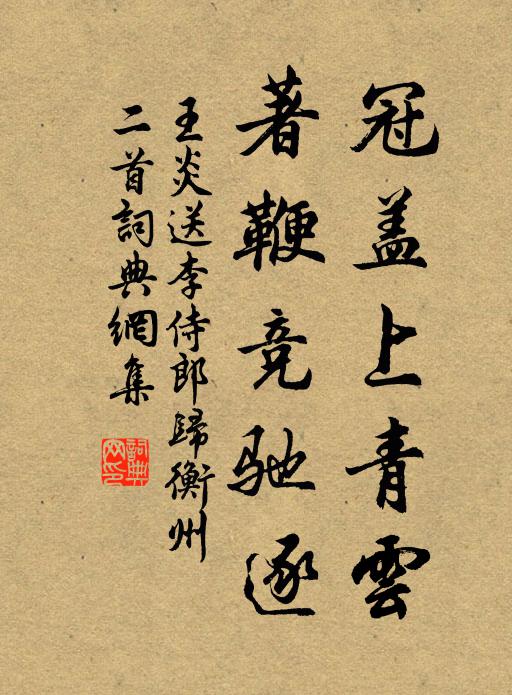 冠盖上青雲
著鞭竞馳逐
王炎送李侍郎歸衡州
二首詞典網集
詞典
网印